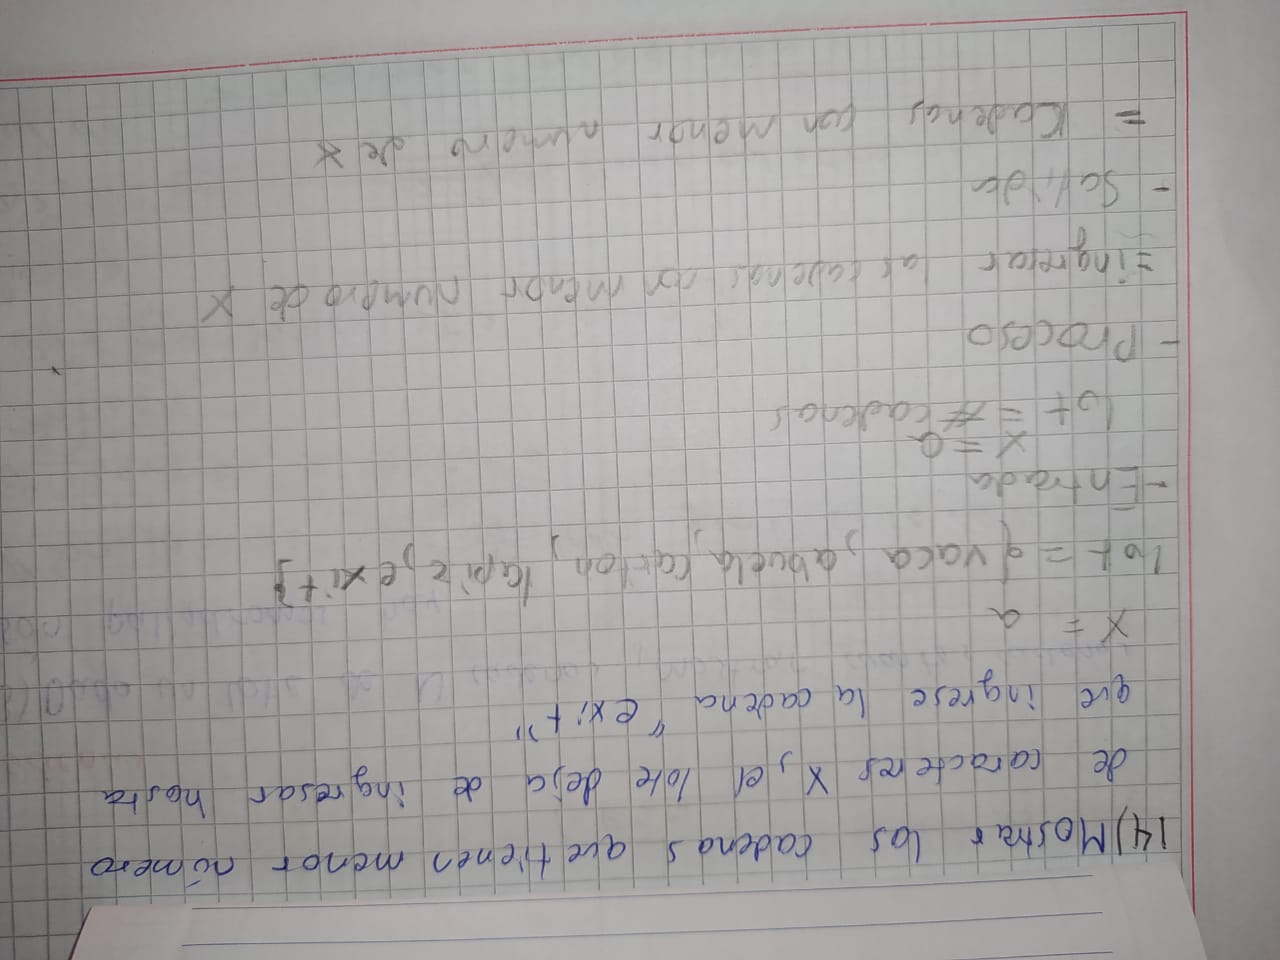 14) Mostrar los cadenas que tienen menor número
de caracteres X, el lote deja de ingresar hasta
que ingrese la cadena "exit"
X = a
Lot = {vaca, abuela, carton, lapiz, exit}
- Entrada
X = a
Lot = # cadenas
- Proceso
= ingresar las cadenas con menor numero de X
- Salida
= Cadenas con menor numero de X